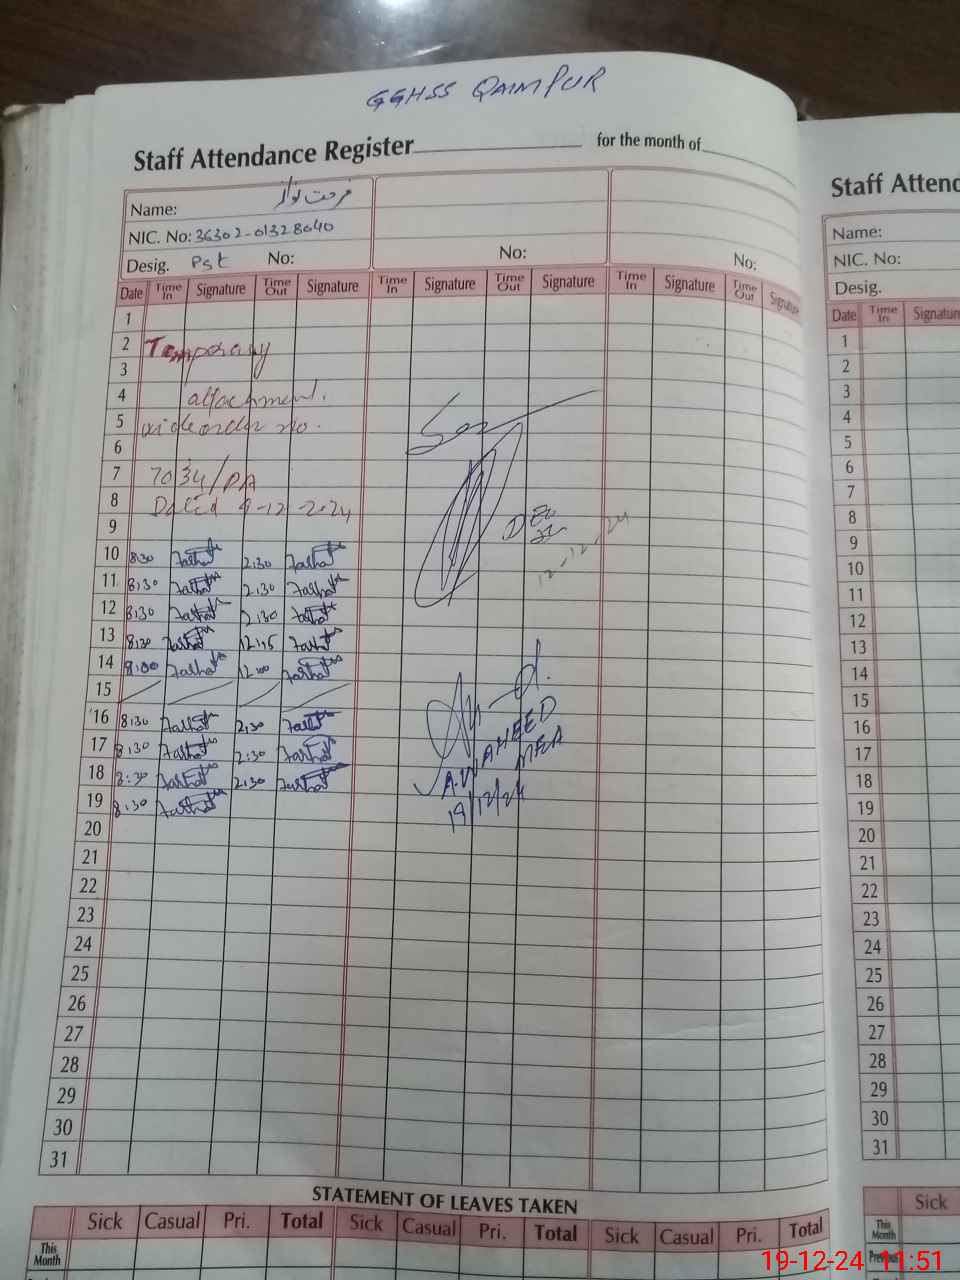 GGHSS QAIMPUR
Staff Attendance Register for the month of
Name: فرحت نواز
NIC. No: 36302-01328040
Desig. Pst No: No: No:
Date Time In Signature Time Out Signature Time In Signature Time Out Signature Time In Signature Time Out Signature
1
2 Temporary
3
4 attachment.
5 vide order no.
6
7 7034/PA
8 Dated 9-12-2024
9
10 8:30 2:30
11 8:30 2:30
12 8:30 2:30
13 8:30 12:15
14 8:00 12:00
15
16 8:30 2:30
17 8:30 2:30
18 8:30 2:30
19 8:30
20
21
22
23
24
25
26
27
28
29
30
31
12-12-24
A.WAHEED
MEA
19/12/24
STATEMENT OF LEAVES TAKEN
Sick Casual Pri. Total Sick Casual Pri. Total Sick Casual Pri. Total
This Month
Staff Attend
Name:
NIC. No:
Desig.
Date Time In Signature
1
2
3
4
5
6
7
8
9
10
11
12
13
14
15
16
17
18
19
20
21
22
23
24
25
26
27
28
29
30
31
Sick
This Month
19-12-24 11:51